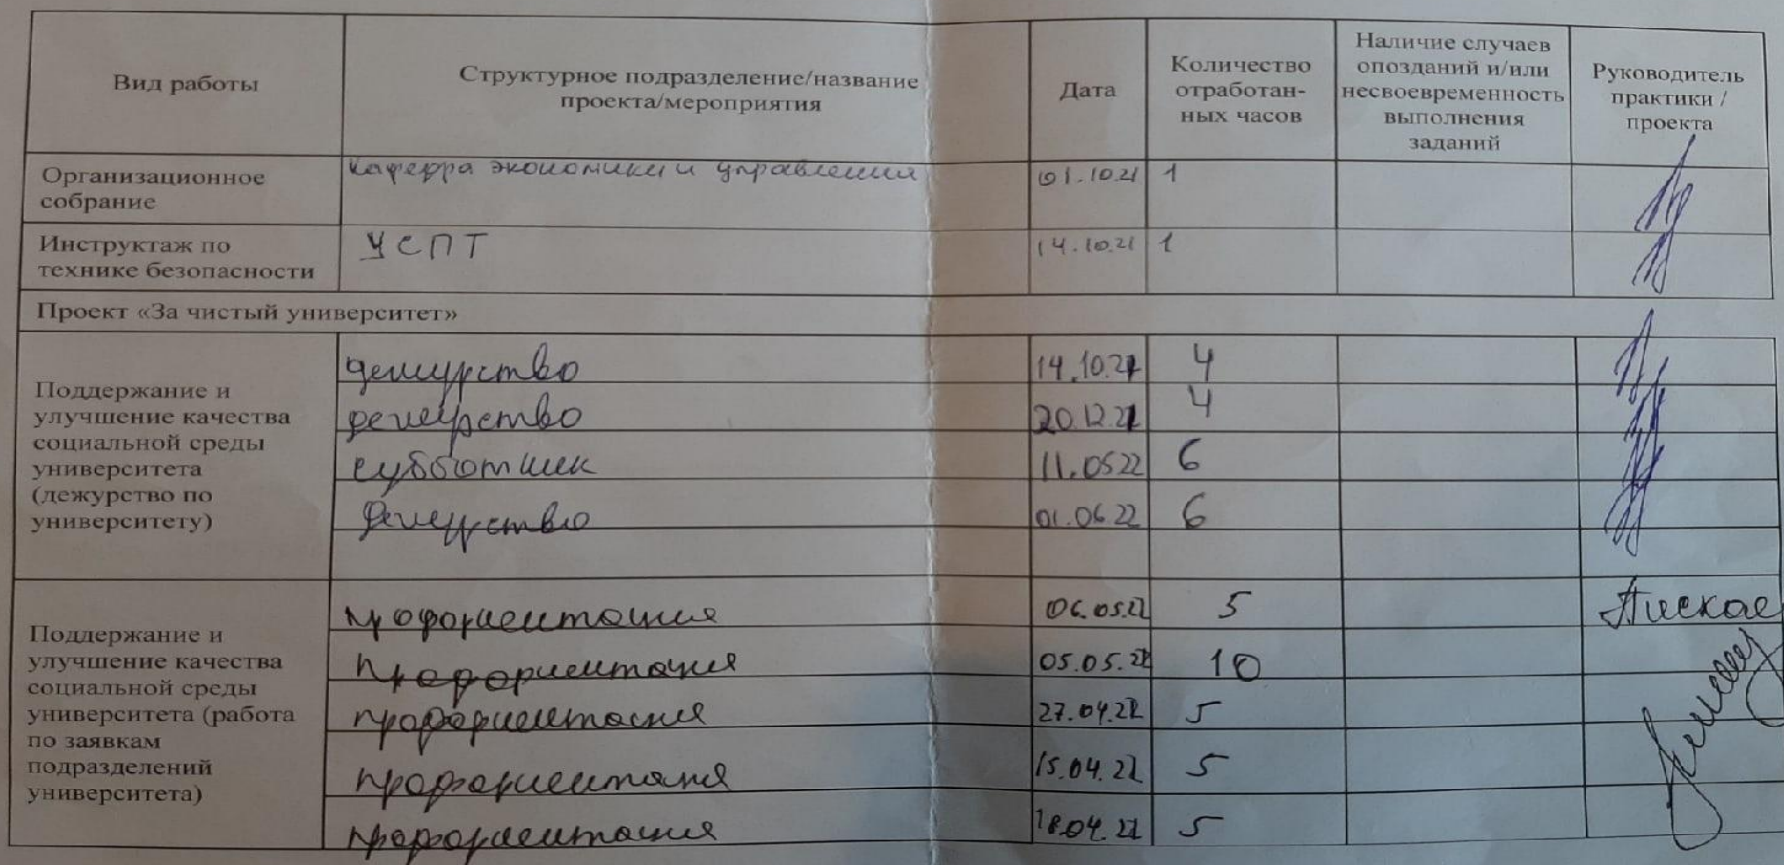 Вид работы
Структурное подразделение/название
проекта/мероприятия
Дата
Количество
отработан-
ных часов
Наличие случаев
опозданий и/или
несвоевременность
выполнения
заданий
Руководитель
практики /
проекта
Организационное
собрание
Кафедра экономики и управления
01.10.21
1
Инструктаж по
технике безопасности
УСПТ
14.10.21
1
Проект «За чистый университет»
Поддержание и
улучшение качества
социальной среды
университета
(дежурство по
университету)
дежурство
14.10.21
4
дежурство
20.12.21
4
субботник
11.05 22
6
Дежурство
01.06.22
6
Поддержание и
улучшение качества
социальной среды
университета (работа
по заявкам
подразделений
университета)
профориентация
06.05.22
5
профориентация
05.05.22
10
профориентация
27.04.22
5
профориентация
15.04.22
5
профориентация
18.04.22
5